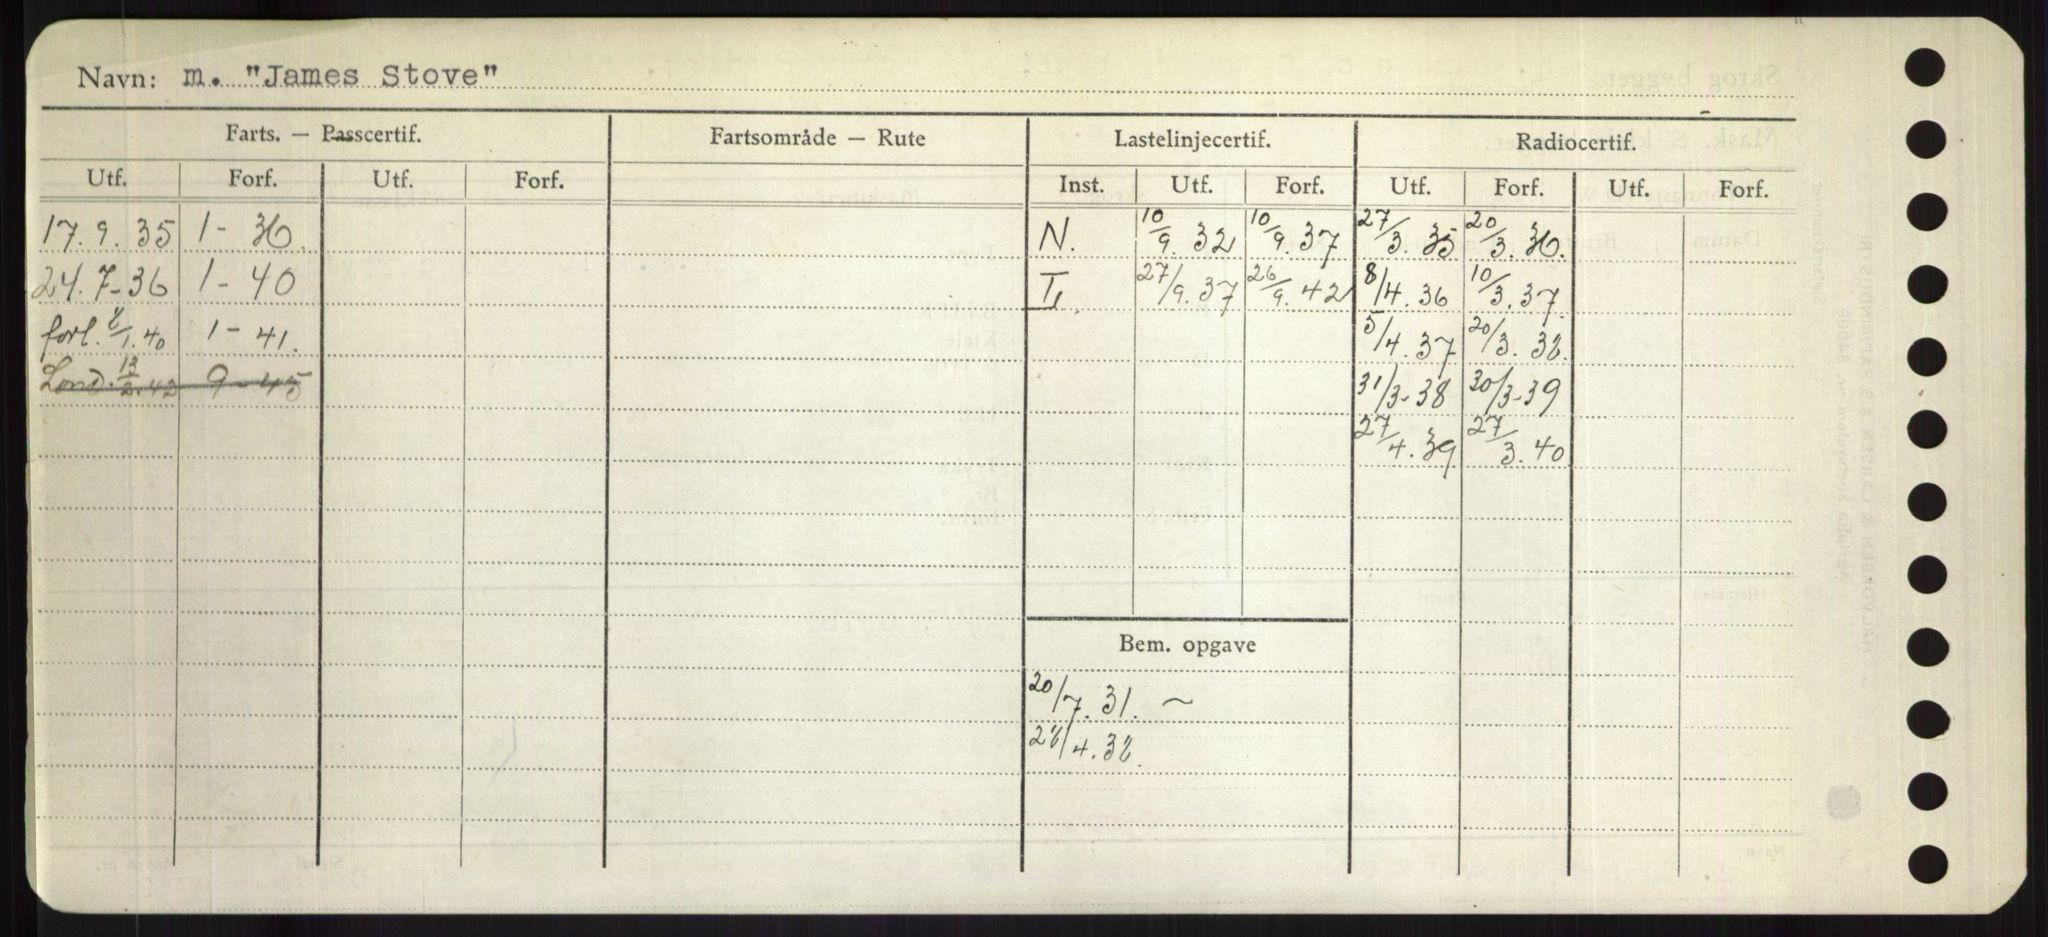 Navn: m. "James Stove"
Farts. — Passcertif. Fartsområde — Rute Lastelinjecertif. Radiocertif.
Utf. Forf. Utf. Forf. Inst. Utf. Forf. Utf. Forf. Utf. Forf.
17. 9. 35 1 - 36. N. 10/9. 32 10/9. 37 27/3. 35 20/3. 36.
24. 7 - 36 1 - 40 I, 27/9. 37 26/9. 42 8/4. 36 10/3. 37.
forl. 8/1. 40 1 - 41. 5/4. 37 20/3. 38.
Lond. 13/2. 42 9 - 45 31/3 - 38 30/3 - 39
27/4. 39 27/3. 40
Bem. opgave
20/7. 31. ~
28/4. 38.